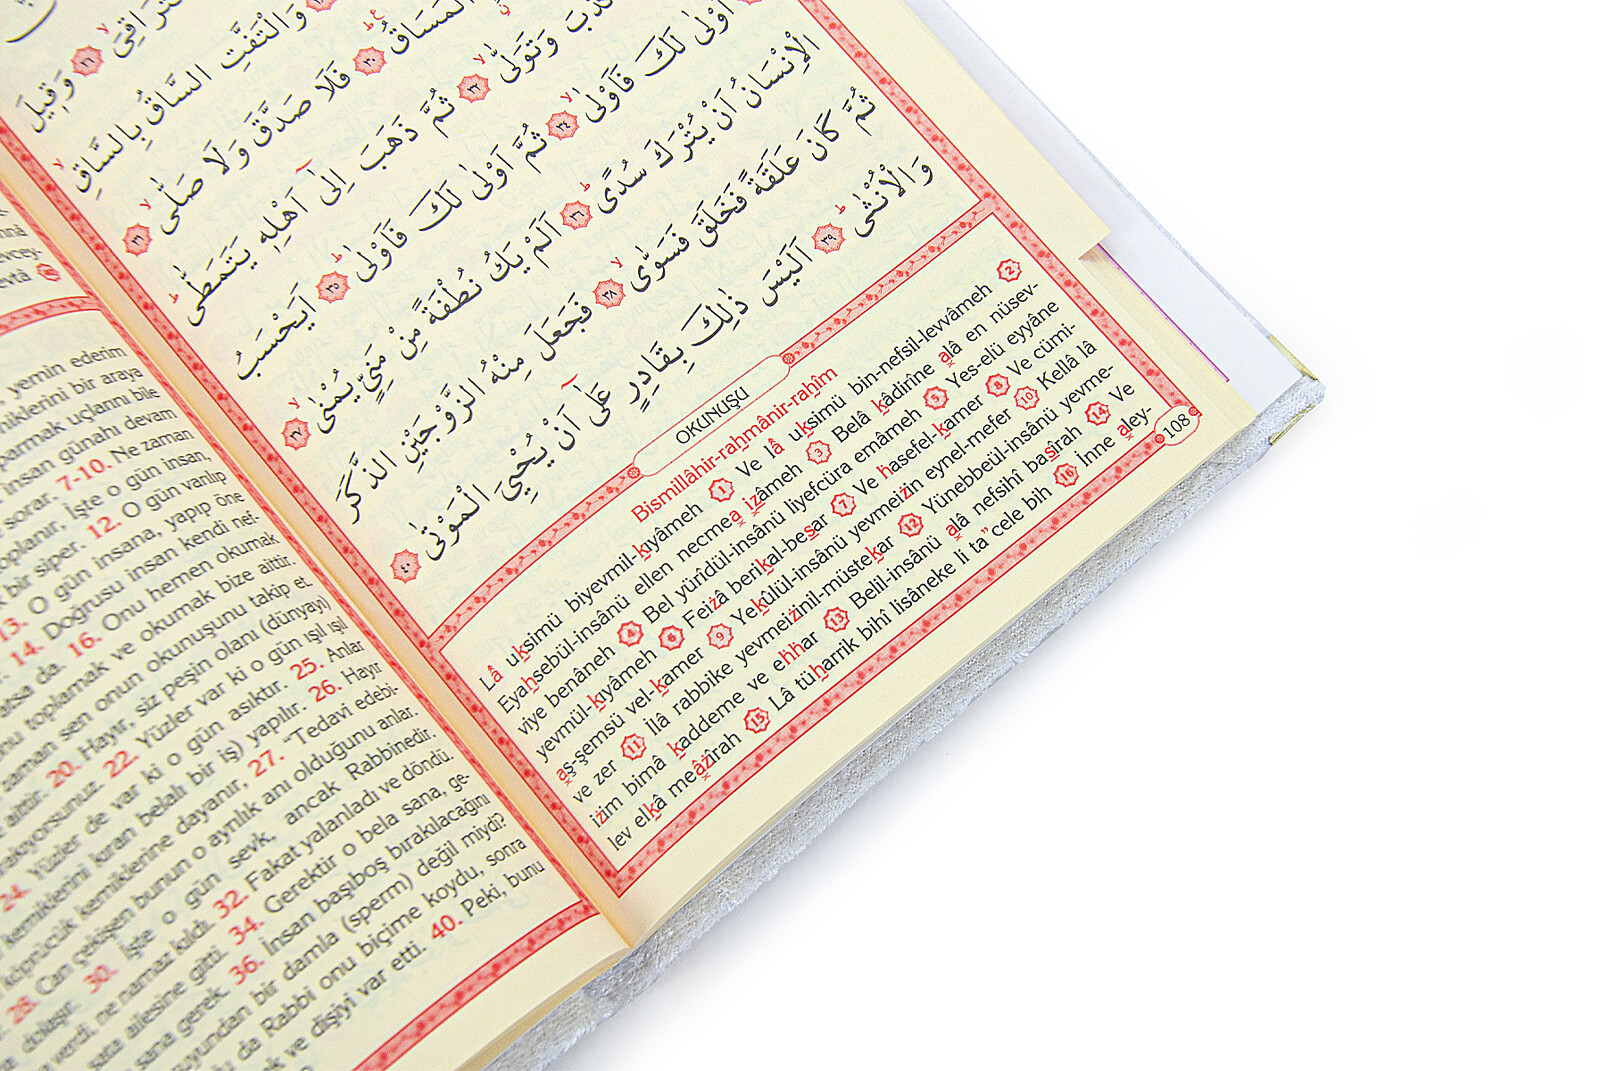 وَقٖيلَ
وَالْتَفَّتِ السَّاقُ بِالسَّاقِۙ
الْمَسَاقُ ﴿٣٠﴾ فَلَا صَدَّقَ وَلَا صَلّٰىۙ ﴿٣١﴾
وَتَوَلّٰىۙ ﴿٣٢﴾ ثُمَّ ذَهَبَ اِلٰٓى اَهْلِهٖ يَتَمَطّٰىۜ
اَوْلٰى لَكَ فَاَوْلٰىۙ ﴿٣٤﴾ ثُمَّ اَوْلٰى لَكَ فَاَوْلٰىۜ ﴿٣٥﴾ اَيَحْسَبُ
الْاِنْسَانُ اَنْ يُتْرَكَ سُدًىۜ ﴿٣٦﴾ اَلَمْ يَكُ نُطْفَةً مِنْ مَنِيٍّ يُمْنٰىۙ ﴿٣٧﴾
ثُمَّ كَانَ عَلَقَةً فَخَلَقَ فَسَوّٰىۙ ﴿٣٨﴾ فَجَعَلَ مِنْهُ الزَّوْجَيْنِ الذَّكَرَ
وَالْاُنْثٰىۜ ﴿٣٩﴾ اَلَيْسَ ذٰلِكَ بِقَادِرٍ عَلٰٓى اَنْ يُحْيِيَ الْمَوْتٰى ﴿٤٠﴾
OKUNUŞU
Bismillâhir-rahmânir-rahîm
Lâ uksimü biyevmil-kıyâmeh 1 Ve lâ uksimü bin-nefsil-levvâmeh 2
Eyahsebül-insânü ellen necmea izâmeh 3 Belâ kâdirîne alâ en nüsev-
viye benâneh 4 Bel yürîdül-insânü liyefcüra emâmeh 5 Yes-elü eyyâne
yevmül-kıyâmeh 6 Feizâ berikal-besar 7 Ve hasefel-kamer 8 Ve cümi-
aş-şemsü vel-kamer 9 Yekûlül-insânü yevmeizin eynel-mefer 10 Kellâ lâ
ve zer 11 İlâ rabbike yevmeizinil-müstekar 12 Yünebbeül-insânü yevme-
izim bimâ kaddeme ve ehhar 13 Belil-insânü alâ nefsihî basîrah 14 Ve
lev elkâ meâzîrah 15 Lâ tüharrik bihî lisâneke li ta"cele bih 16 İnne aley-
108
yemin ederim
niklerini bir araya
parmak uçlarını bile
insan günahı devam
sorar. 7-10. Ne zaman
toplanır, İşte o gün insan,
bir siper. 12. O gün varılıp
13. O gün insana, yapıp öne
14. Doğrusu insan kendi nef-
da. 16. Onu hemen okumak
toplamak ve okumak bize aittir.
zaman sen onun okunuşunu takip et.
aittir. 20. Hayır, siz peşin olanı (dünyayı)
22. Yüzler var ki o gün ışıl ışıl
24. Yüzler de var ki o gün asıktır. 25. Anlar
kemiklerini kıran belalı bir iş) yapılır. 26. Hayır
köprücük kemiklerine dayanır, 27. "Tedavi edebi-
28. Can çekişen bunun o ayrılık anı olduğunu anlar.
dolaşır. 30. İşte o gün sevk, ancak Rabbinedir.
ne namaz kıldı. 32. Fakat yalanladı ve döndü.
ailesine gitti. 34. Gerektir o bela sana, ge-
sana gerek. 36. İnsan başıboş bırakılacağını
bir damla (sperm) değil miydi?
da Rabbi onu biçime koydu, sonra
ve dişiyi var etti. 40. Peki, bunu